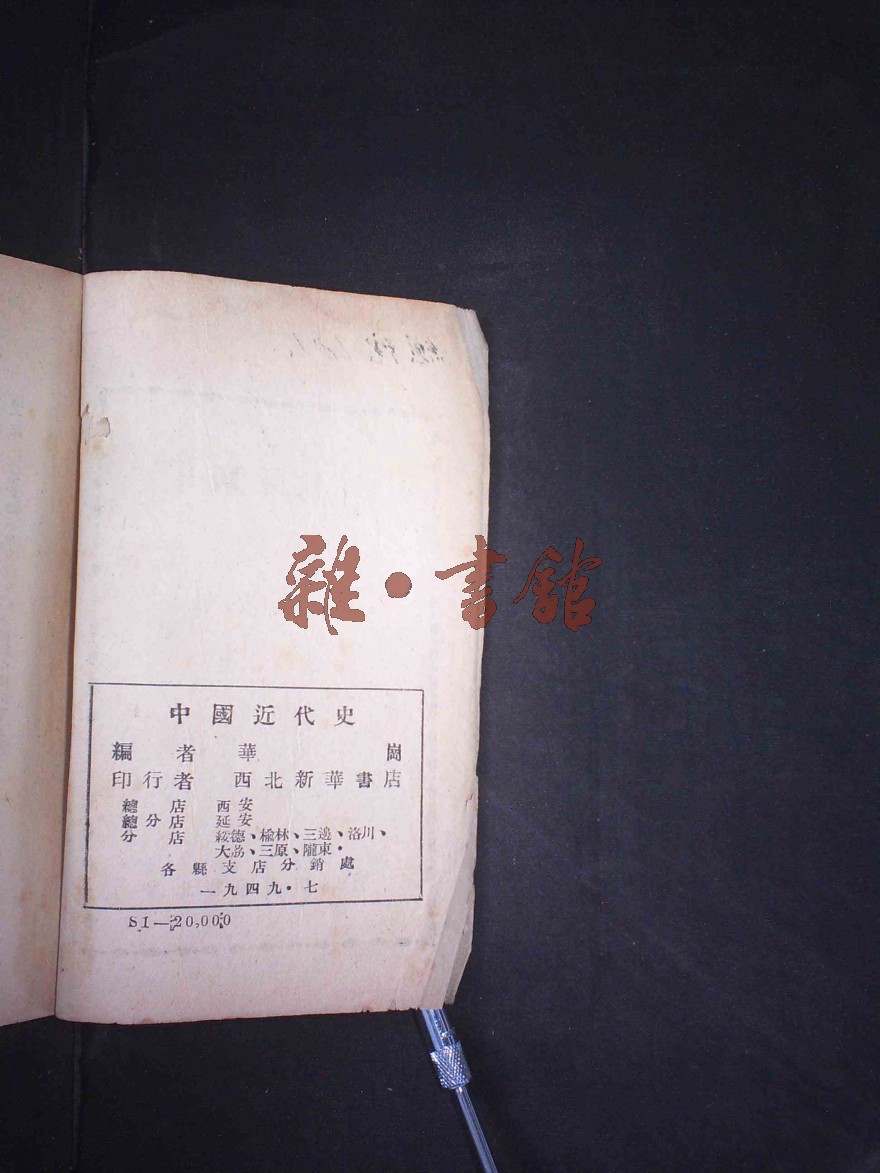 雜·書館
中國近代史
編者 華崗
印行者 西北新華書店
總店 西安
總分店 延安
分店 綏德、楡林、三邊、洛川、
大荔、三原、隴東·
各縣支店分銷處
一九四九·七
S1—20,000